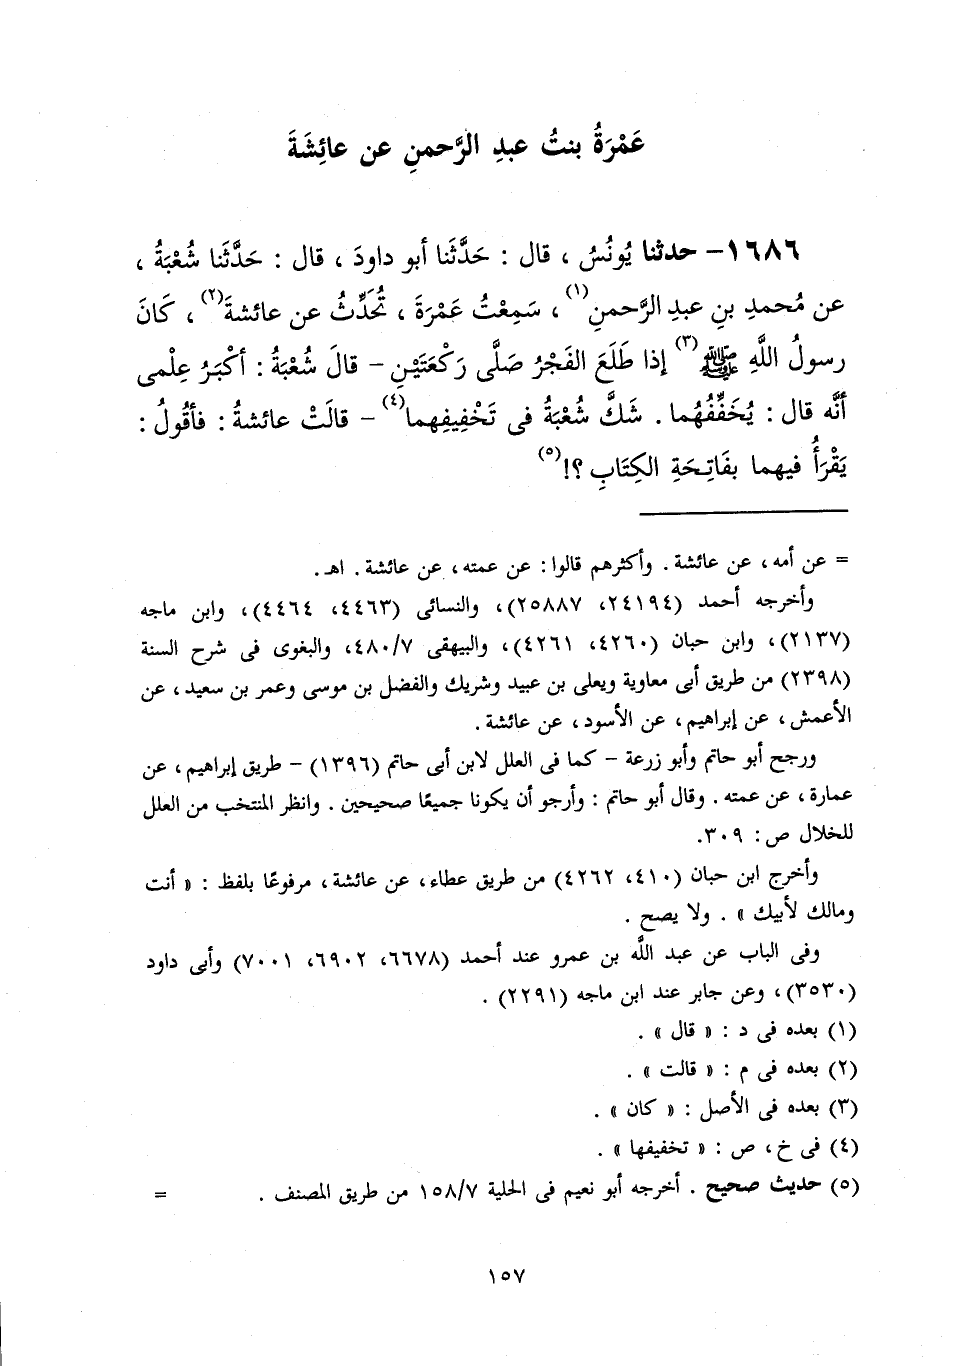 عَمْرَةُ بنتُ عبدِ الرَّحمنِ عن عائِشَةَ
١٦٨٦- حدثنا يُونُسُ ، قال : حَدَّثَنا أبو داودَ ، قال : حَدَّثَنا شُعْبَةُ ،
عن مُحمدِ بنِ عبدِ الرَّحمنِ(١) ، سَمِعْتُ عَمْرَةَ ، تُحَدِّثُ عن عائشةَ(٢) ، كَانَ
رسولُ اللَّهِ ﷺ(٣) إذا طَلَعَ الفَجْرُ صَلَّى رَكْعَتَيْنِ – قالَ شُعْبَةُ : أكْبَرُ عِلْمى
أنَّه قال : يُخَفِّفُهُما . شَكَّ شُعْبَةُ فى تَخْفِيفِهِما(٤) – قالَتْ عائشةُ : فأقُولُ :
يَقْرَأُ فيهما بفَاتِحَةِ الكِتَابِ ؟!(٥)
= عن أمه ، عن عائشة . وأكثرهم قالوا : عن عمته ، عن عائشة . اهـ .
وأخرجه أحمد (٢٤١٩٤، ٢٥٨٨٧)، والنسائى (٤٤٦٣، ٤٤٦٤)، وابن ماجه
(٢١٣٧)، وابن حبان (٤٢٦٠، ٤٢٦١)، والبيهقى ٤٨٠/٧، والبغوى فى شرح السنة
(٢٣٩٨) من طريق أبى معاوية ويعلى بن عبيد وشريك والفضل بن موسى وعمر بن سعيد ، عن
الأعمش ، عن إبراهيم ، عن الأسود ، عن عائشة .
ورجح أبو حاتم وأبو زرعة – كما فى العلل لابن أبى حاتم (١٣٩٦) – طريق إبراهيم ، عن
عمارة ، عن عمته . وقال أبو حاتم : وأرجو أن يكونا جميعًا صحيحين . وانظر المنتخب من العلل
للخلال ص : ٣٠٩.
وأخرج ابن حبان (٤١٠، ٤٢٦٢) من طريق عطاء ، عن عائشة ، مرفوعًا بلفظ : « أنت
ومالك لأبيك » . ولا يصح .
وفى الباب عن عبد اللَّه بن عمرو عند أحمد (٦٦٧٨، ٦٩٠٢، ٧٠٠١) وأبى داود
(٣٥٣٠)، وعن جابر عند ابن ماجه (٢٢٩١) .
(١) بعده فى د : « قال » .
(٢) بعده فى م : « قالت » .
(٣) بعده فى الأصل : « كان » .
(٤) فى خ ، ص : « تخفيفها » .
(٥) حديث صحيح . أخرجه أبو نعيم فى الحلية ١٥٨/٧ من طريق المصنف . =
١٥٧